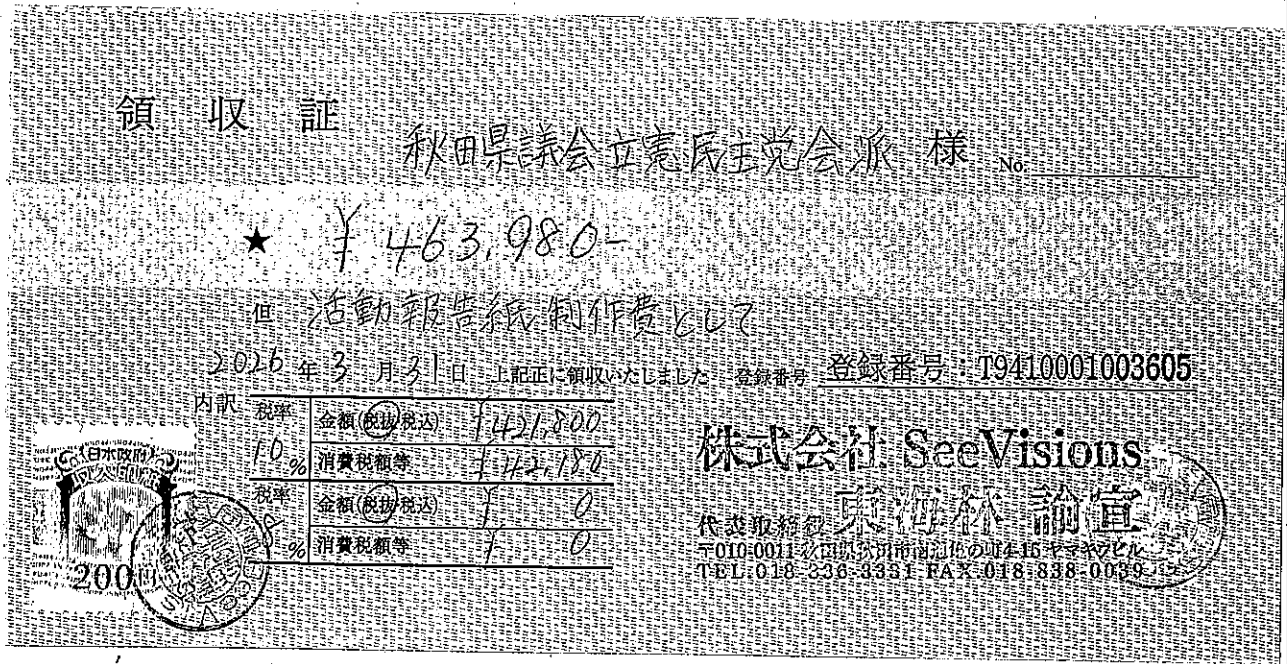 領収証
秋田県議会立憲民主党会派 様 No.
★ ¥463,980-
但 活動報告紙制作費として
2026年3月31日 上記正に領収いたしました 登録番号 登録番号：T9410001003605
内訳 税率 10% 金額(税抜・税込) ¥421,800
消費税額等 ¥42,180
税率 % 金額(税抜・税込) ¥ 0
消費税額等 ¥ 0
日本政府
収入印紙
200円
株式会社 SeeVisions
代表取締役 東海林 諭宣
〒010-0011 秋田県秋田市南通亀の町4-15 ヤマキウビル
TEL.018-336-3331 FAX.018-838-0039